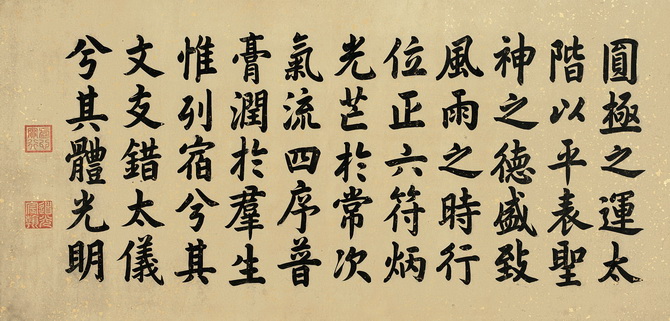 圓極之運太
階以平表聖
神之德盛致
風雨之時行
位正六符炳
光芒於常次
氣流四序普
膏潤於羣生
惟列宿兮其
文爻錯太儀
兮其體光明